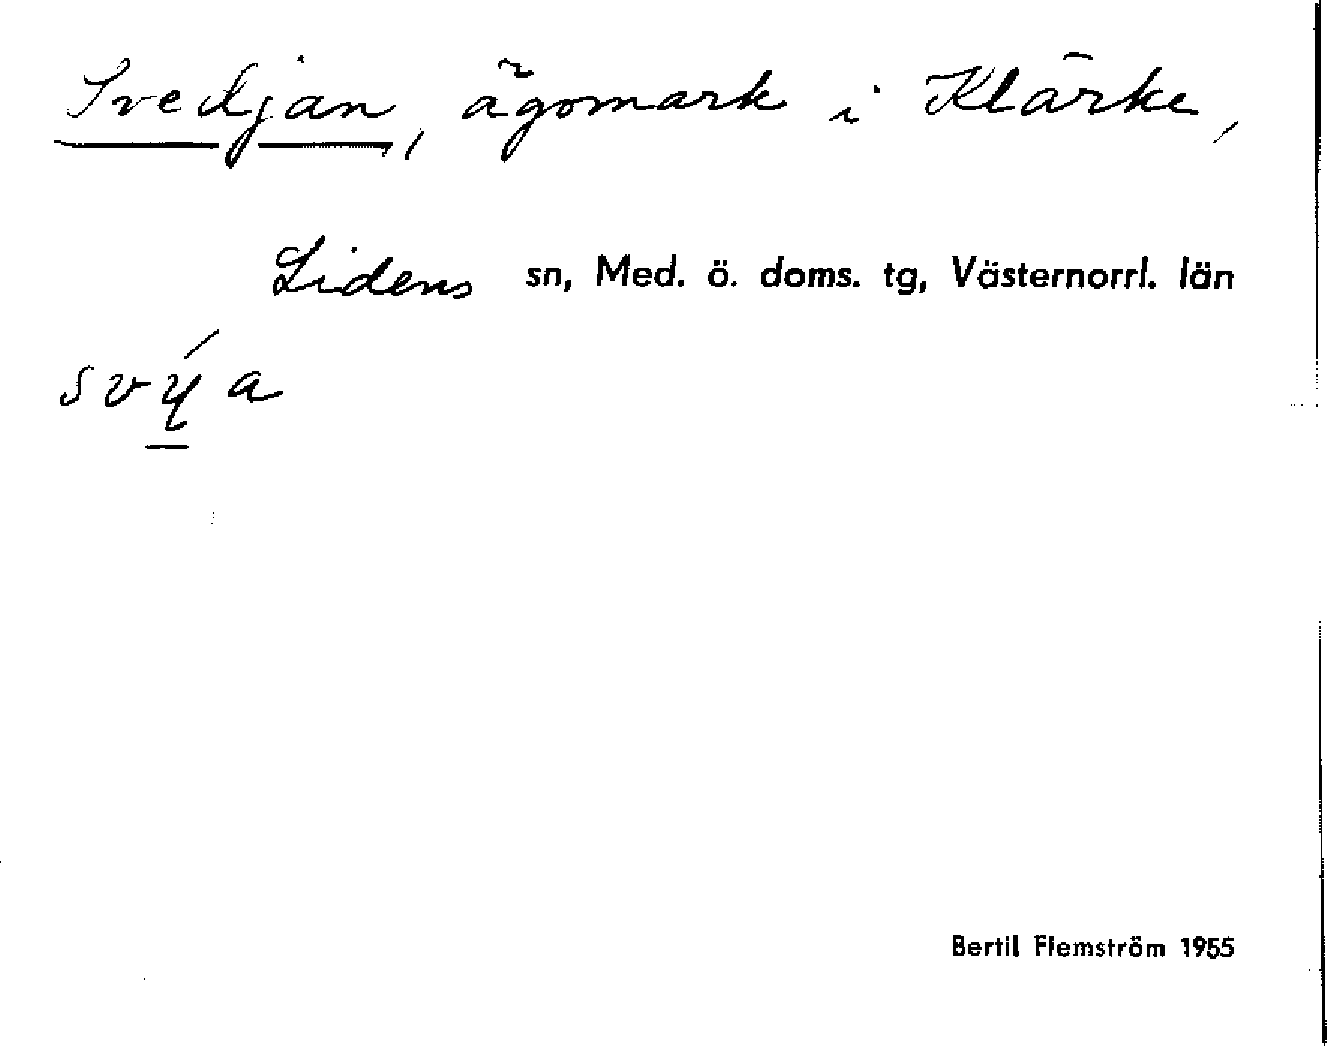 Svedjan, ägomark i Klärke,
Lidens sn, Med. ö. doms. tg, Västernorrl. län
Bertil Flemström 1955